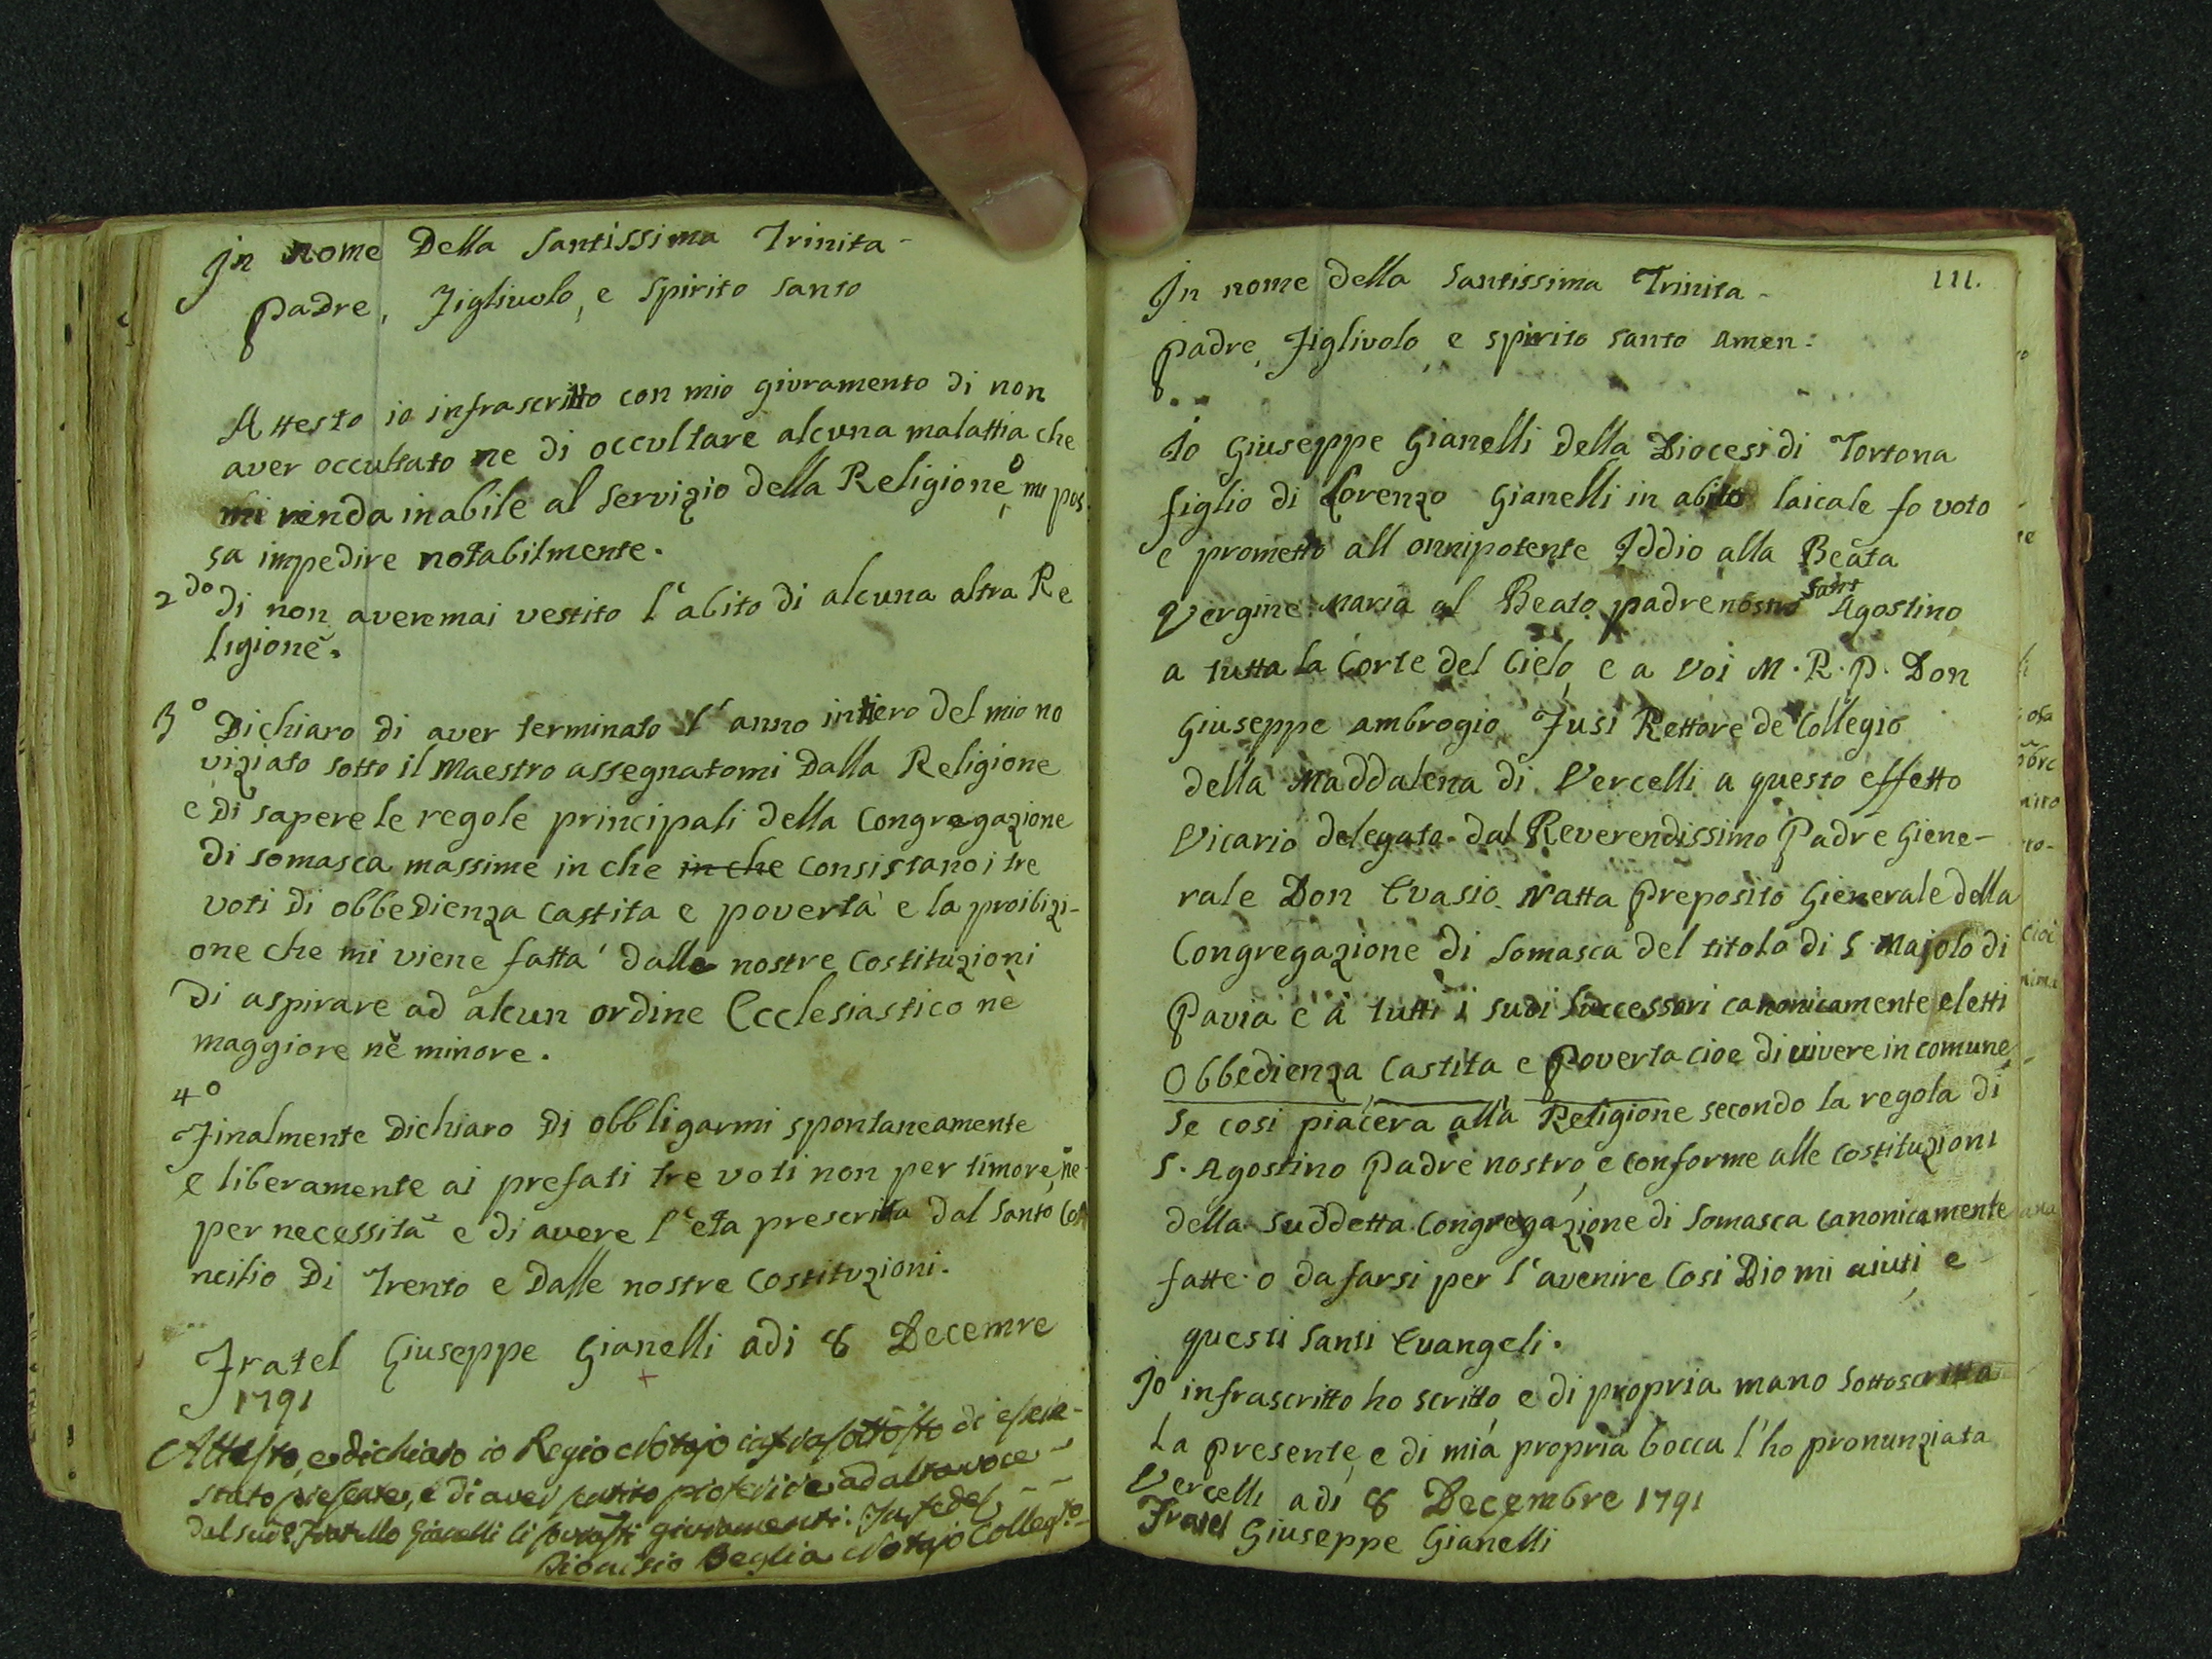 In nome Della santissima Trinita-
Padre, Figliuolo, e Spirito santo
Attesto io infrascritto con mio giuramento di non
aver occultato ne di occultare alcuna malattia che
mi renda inabile al servizio della Religione, o mi pos
sa impedire notabilmente.
2do di non aver mai vestito l'abito di alcuna altra Re
ligione.
3o Dichiaro di aver terminato l'anno intiero del mio no
viziato sotto il Maestro assegnatomi Dalla Religione
e Di sapere le regole principali della Congregazione
Di somasca massime in che in che Consistano i tre
voti Di obbeDienza Castita e poverta' e la proibizi-
one che mi viene fatta' dalle nostre Costituzioni
Di aspirare ad alcun ordine Ecclesiastico nè
maggiore nè minore.
4o
Finalmente Dichiaro Di obbligarmi spontaneamente
e liberamente ai prefati tre voti non per timore, ne
per necessità e di avere l'eta prescritta Dal Santo Co
ncilio Di Trento e Dalle nostre Costituzioni.
Fratel Giuseppe Gianelli adi 8 Decemre
1791
Attesto, e dichiaro io Regio Notajo infrasottosto di essere
stato presente, e di aver sentito proferire ad alta voce
dal sud.o Fratello Gianelli li giuramenti. In fede
Dionisio Beglia Notajo Colleg.to
111.
In nome della Santissima Trinita-
Padre, Figlivolo, e spirito santo Amen:
Io Giuseppe Gianelli della Diocesi di Tortona
figlio di Lorenzo Gianelli in abito laicale fo voto
e prometto all onnipotente Iddio alla Beata
Vergine Maria al Beato padre nostro Sant Agostino
a tutta la Corte del Cielo, e a Voi M. R. P. Don
Giuseppe ambrogio Fusi Rettore de Collegio
della Maddalena di Vercelli a questo effetto
Vicario delegato dal Reverendissimo Padre Giene-
rale Don Evasio Natta Preposito Gienerale della
Congregazione di Somasca del titolo di S. Majolo di
Pavia e a tutti i suoi Successori canonicamente eletti
Obbedienza, Castita, e Poverta cioe di vivere in comune
se cosi piacera alla Religione secondo la regola di
S. Agostino Padre nostro, e conforme alle costituzioni
della suddetta Congregazione di Somasca canonicamente
fatte o da farsi per l'avenire Cosi Dio mi aiuti, e
questi Santi Evangeli.
Io infrascritto ho scritto, e di propria mano sottoscritta
La presente, e di mia propria bocca l'ho pronunziata
Vercelli adi 8 Decembre 1791
Fratel Giuseppe Gianelli